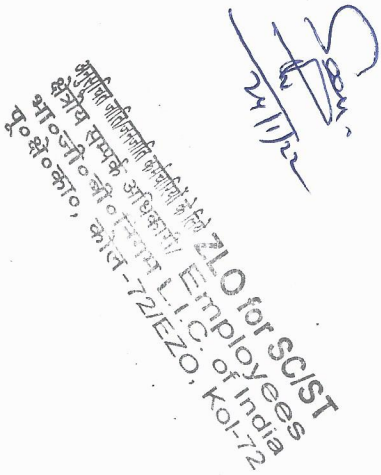 24/1/22
अनुसूचित जाति/जनजाति कर्मचारियों के लिये
क्षेत्रीय सम्पर्क अधिकारी/ ZLO for SC/ST
Employees
भा०जी०बी०निगम L.I.C. of India
पू०क्षे०का०, कोल -72/EZO, Kol-72